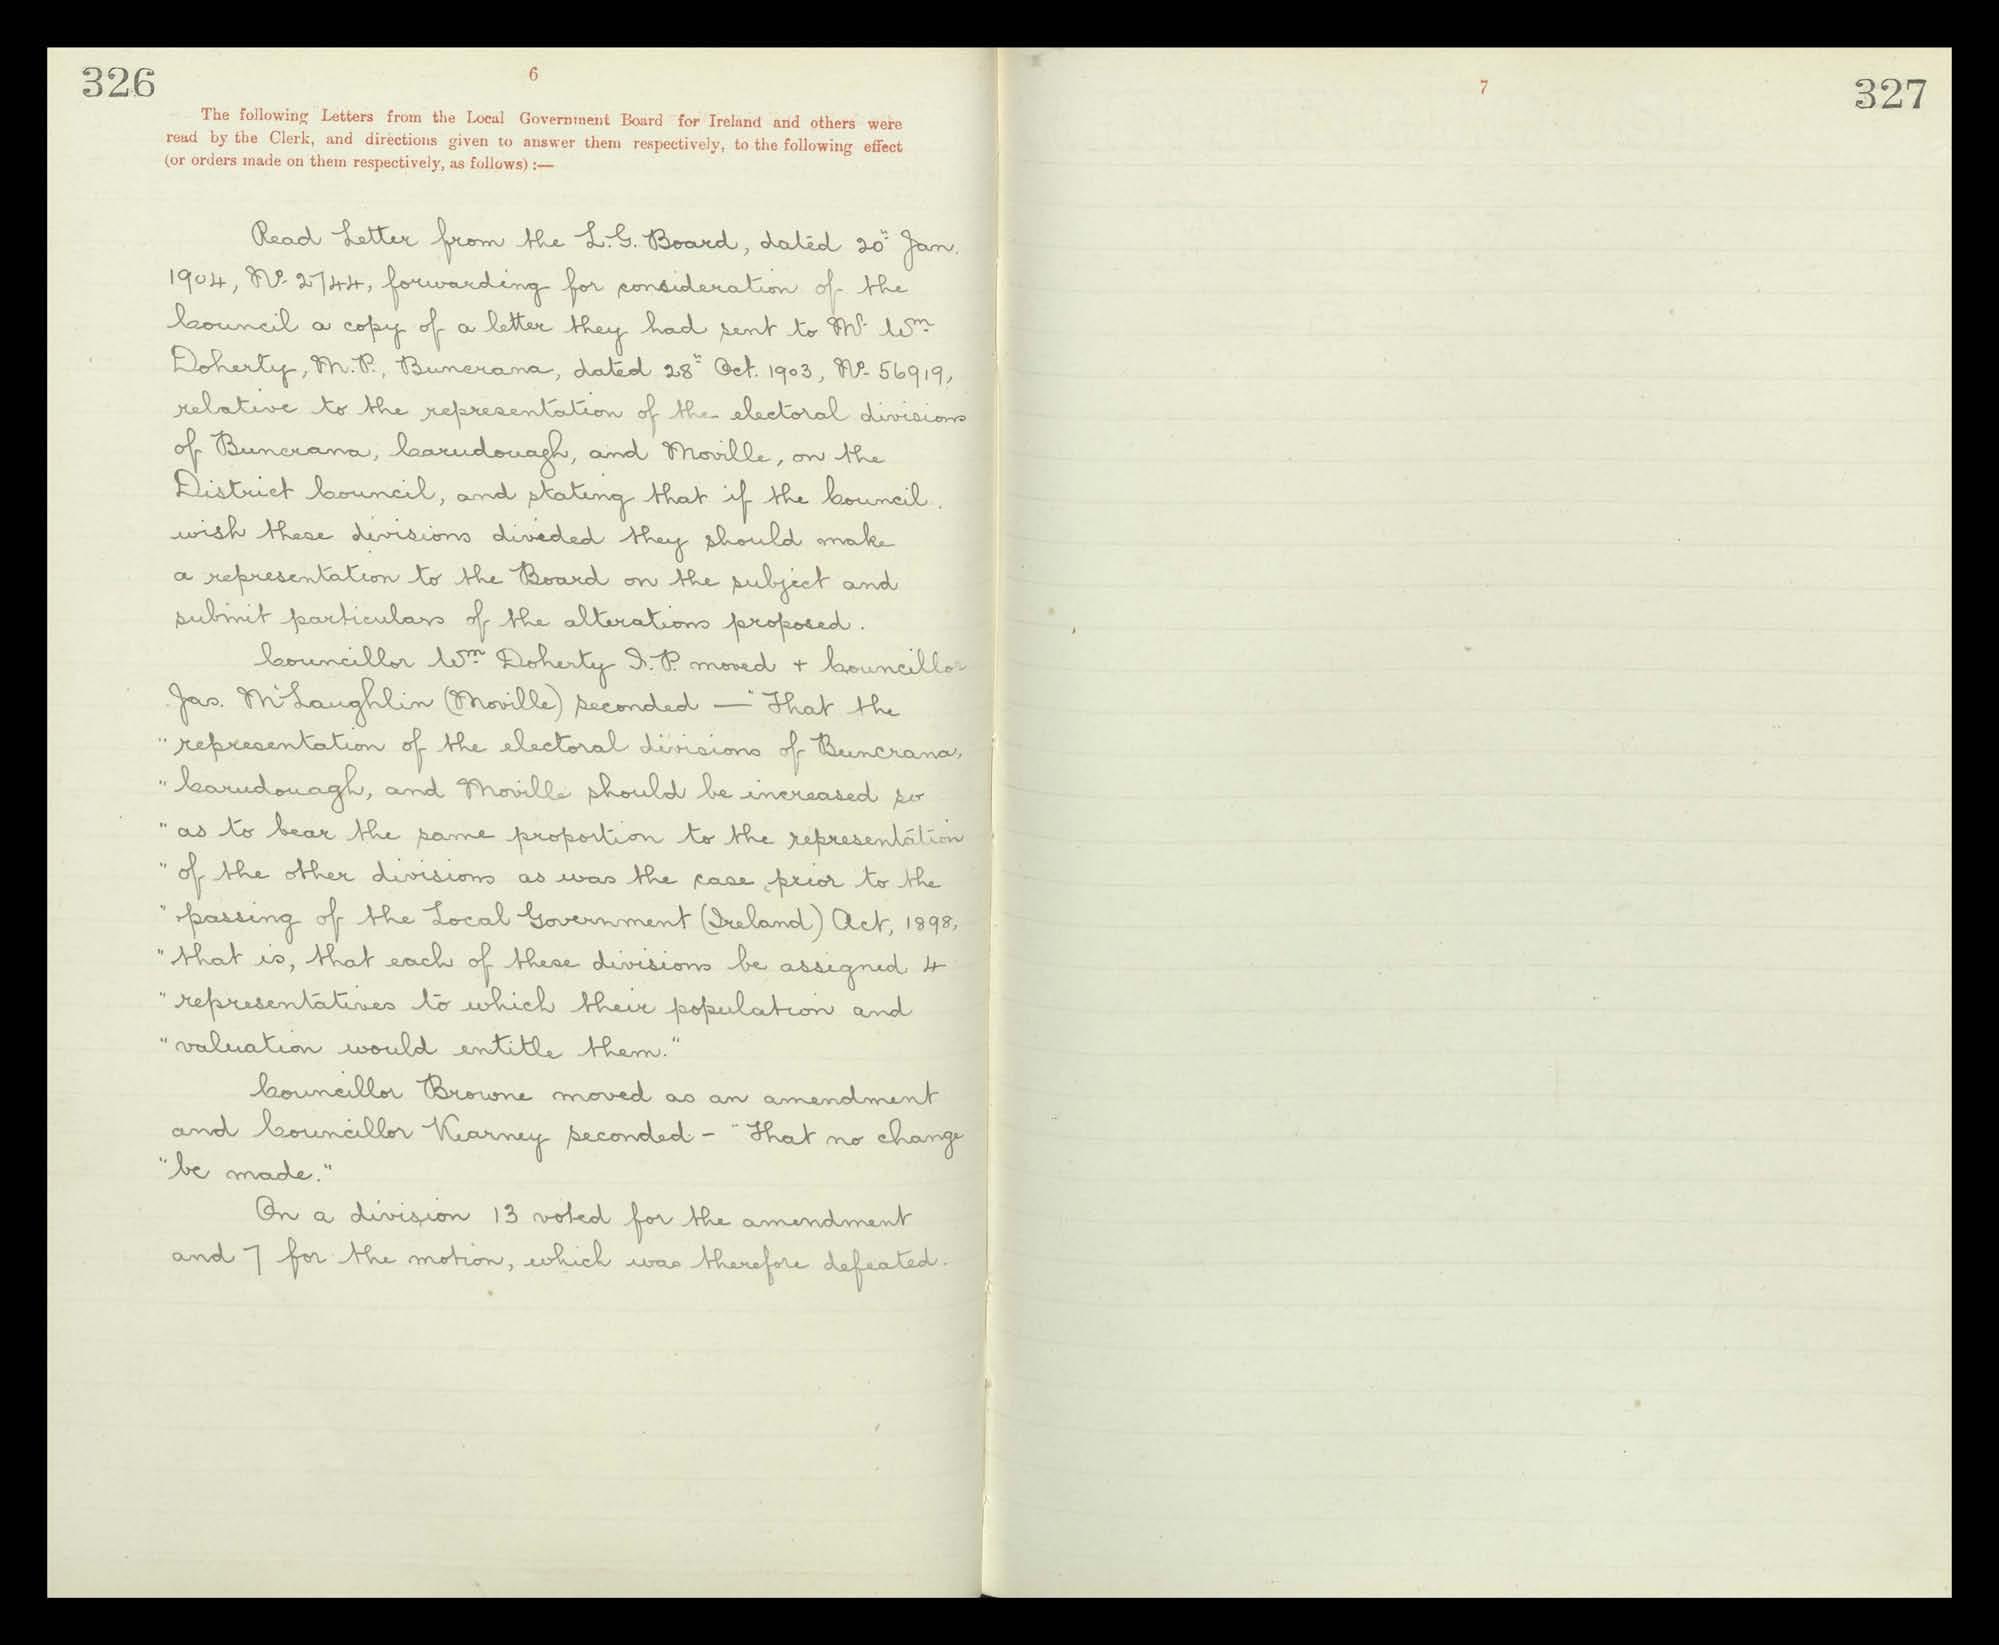 326
6
The following Letters from the Local Government Board for Ireland and others were
read by the Clerk, and directions given to answer them respectively, to the following effect
(or orders made on them respectively, as follows) :—
Read Letter from the L.G. Board, dated 20" Jan.
1904, No. 2744, forwarding for consideration of the
Council a copy of a letter they had sent to Mr. Wm.
Doherty, M.P., Buncrana, dated 28" Oct. 1903, No. 56919,
relative to the representation of the electoral divisions
of Buncrana, Carndonagh, and Moville, on the
District Council, and stating that if the Council
wish these divisions divided they should make
a representation to the Board on the subject and
submit particulars of the alterations proposed.
Councillor Wm. Doherty J.P. moved + Councillor
Jas. McLaughlin (Moville) seconded — "That the
" representation of the electoral divisions of Buncrana,
" Carndonagh, and Moville should be increased so
" as to bear the same proportion to the representation
" of the other divisions as was the case prior to the
" passing of the Local Government (Ireland) Act, 1898,
" that is, that each of these divisions be assigned 4
" representatives to which their population and
" valuation would entitle them."
Councillor Browne moved as an amendment
and Councillor Kearney seconded - "That no change
" be made."
On a division 13 voted for the amendment
and 7 for the motion, which was therefore defeated.
7
327